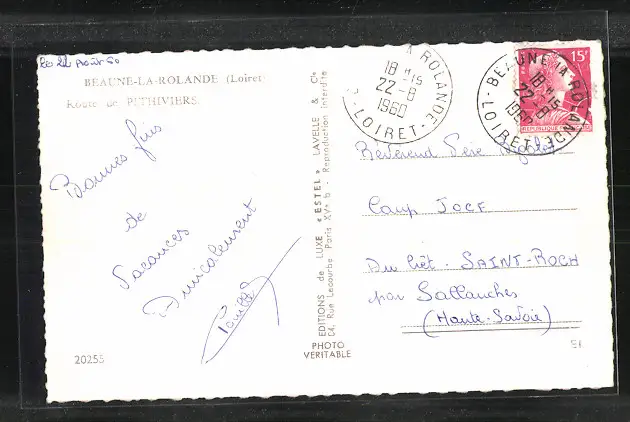 22 Août 60
BEAUNE-LA-ROLANDE (Loiret)
Route de PITHIVIERS
Bonnes fins
de
Vacances
Amicalement
20255
EDITIONS de LUXE « ESTEL » LAVELLE & Cie
64, Rue Lecourbe Paris XVe - Reproduction Interdite
PHOTO
VERITABLE
A ROLANDE
18 H 15
22-8
1960
· LOIRET ·
BEUNE LA ROLANDE
18 H 15
22-8
1960
LOIRET
15F
REPUBLIQUE FRANÇAISE
Révérend Père
Camp JOCF
Du hôt. SAINT-ROCH
par Sallanches
(Haute-Savoie)